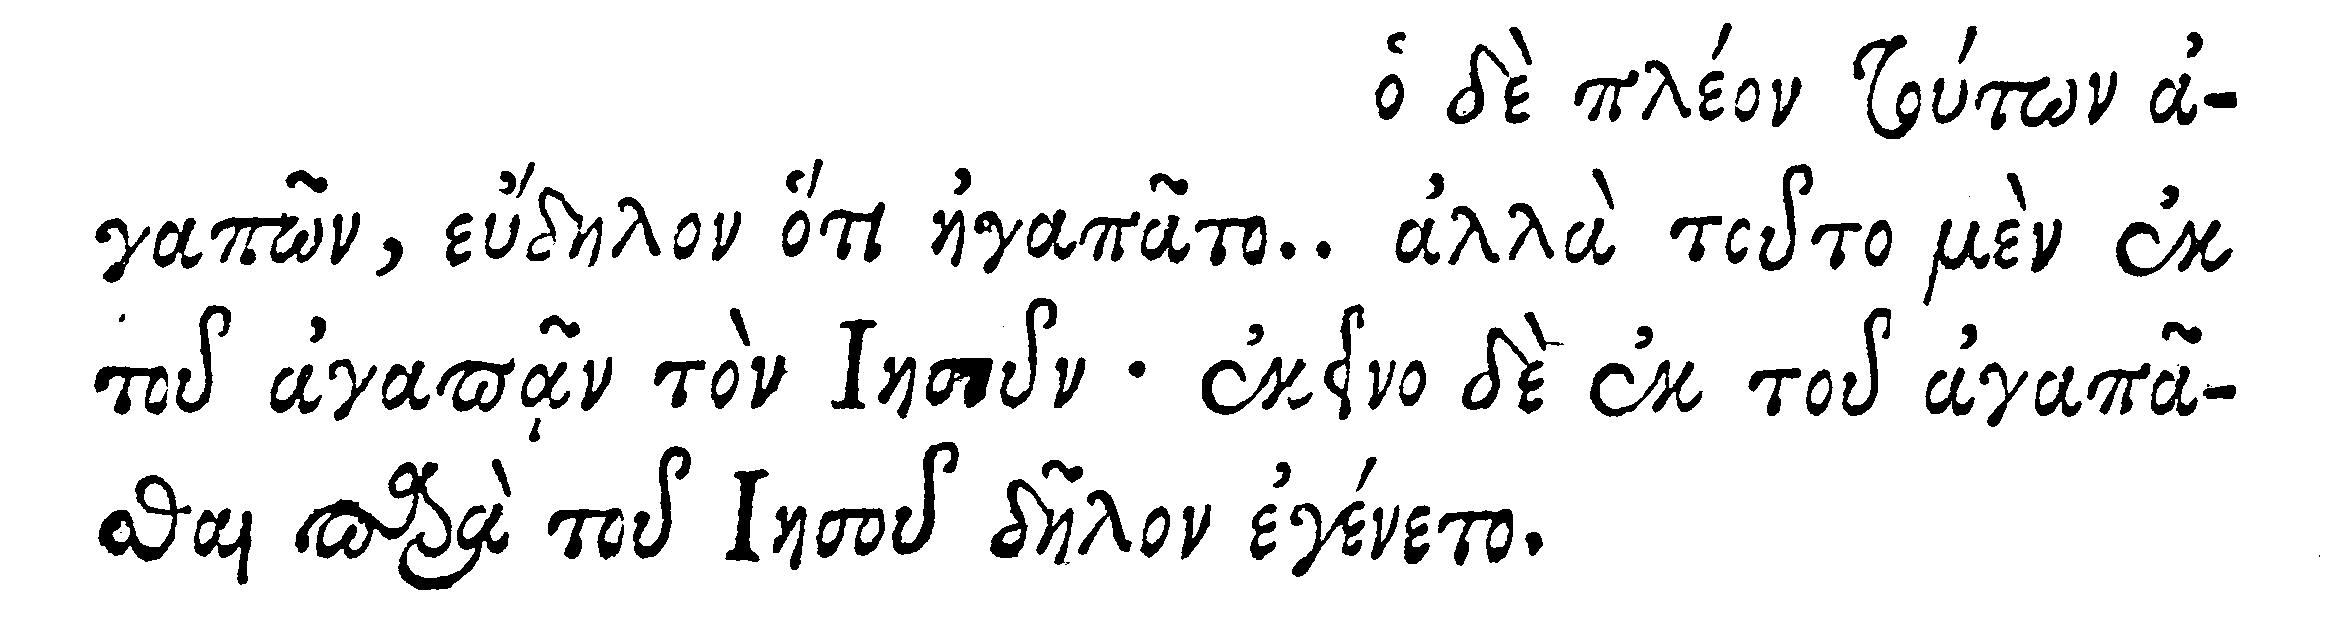 ὁ δὲ πλέον τούτων ἀ-
γαπῶν, εὔδηλον ὅτι ἠγαπᾶτο.. ἀλλὰ τοῦτο μὲν ἐκ
τοῦ ἀγαπᾷν τὸν Ιησοῦν · ἐκεῖνο δὲ ἐκ τοῦ ἀγαπᾶ-
σθαι παρὰ τοῦ Ιησοῦ δῆλον ἐγένετο.